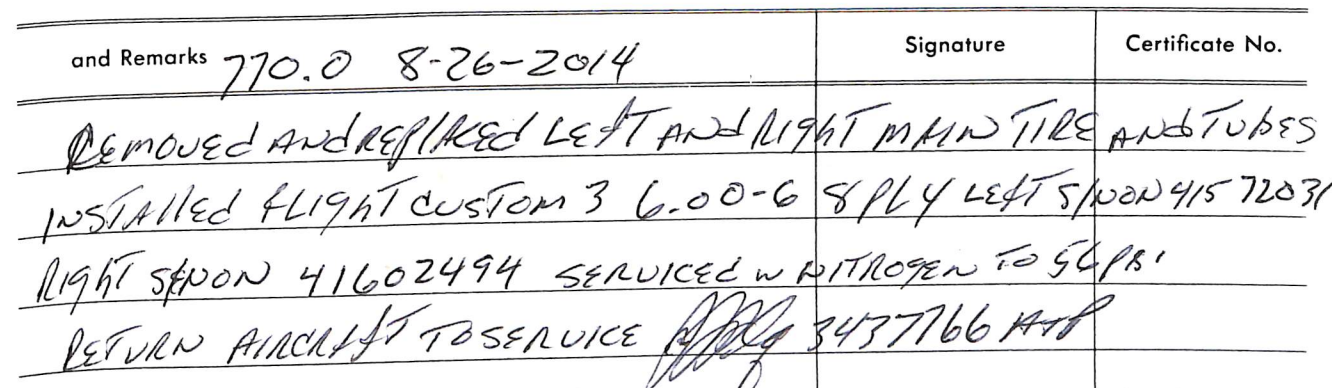 and Remarks 770.0 8-26-2014 Signature Certificate No.
REMOVED AND REPLACED LEFT AND RIGHT MAIN TIRE AND TUBES
INSTALLED FLIGHT CUSTOM 3 6.00-6 8 PLY LEFT S/NON 415 72031
RIGHT S/NON 41602494 SERVICED W NITROGEN TO 56 PSI
RETURN AIRCRAFT TO SERVICE 3437766 A+P